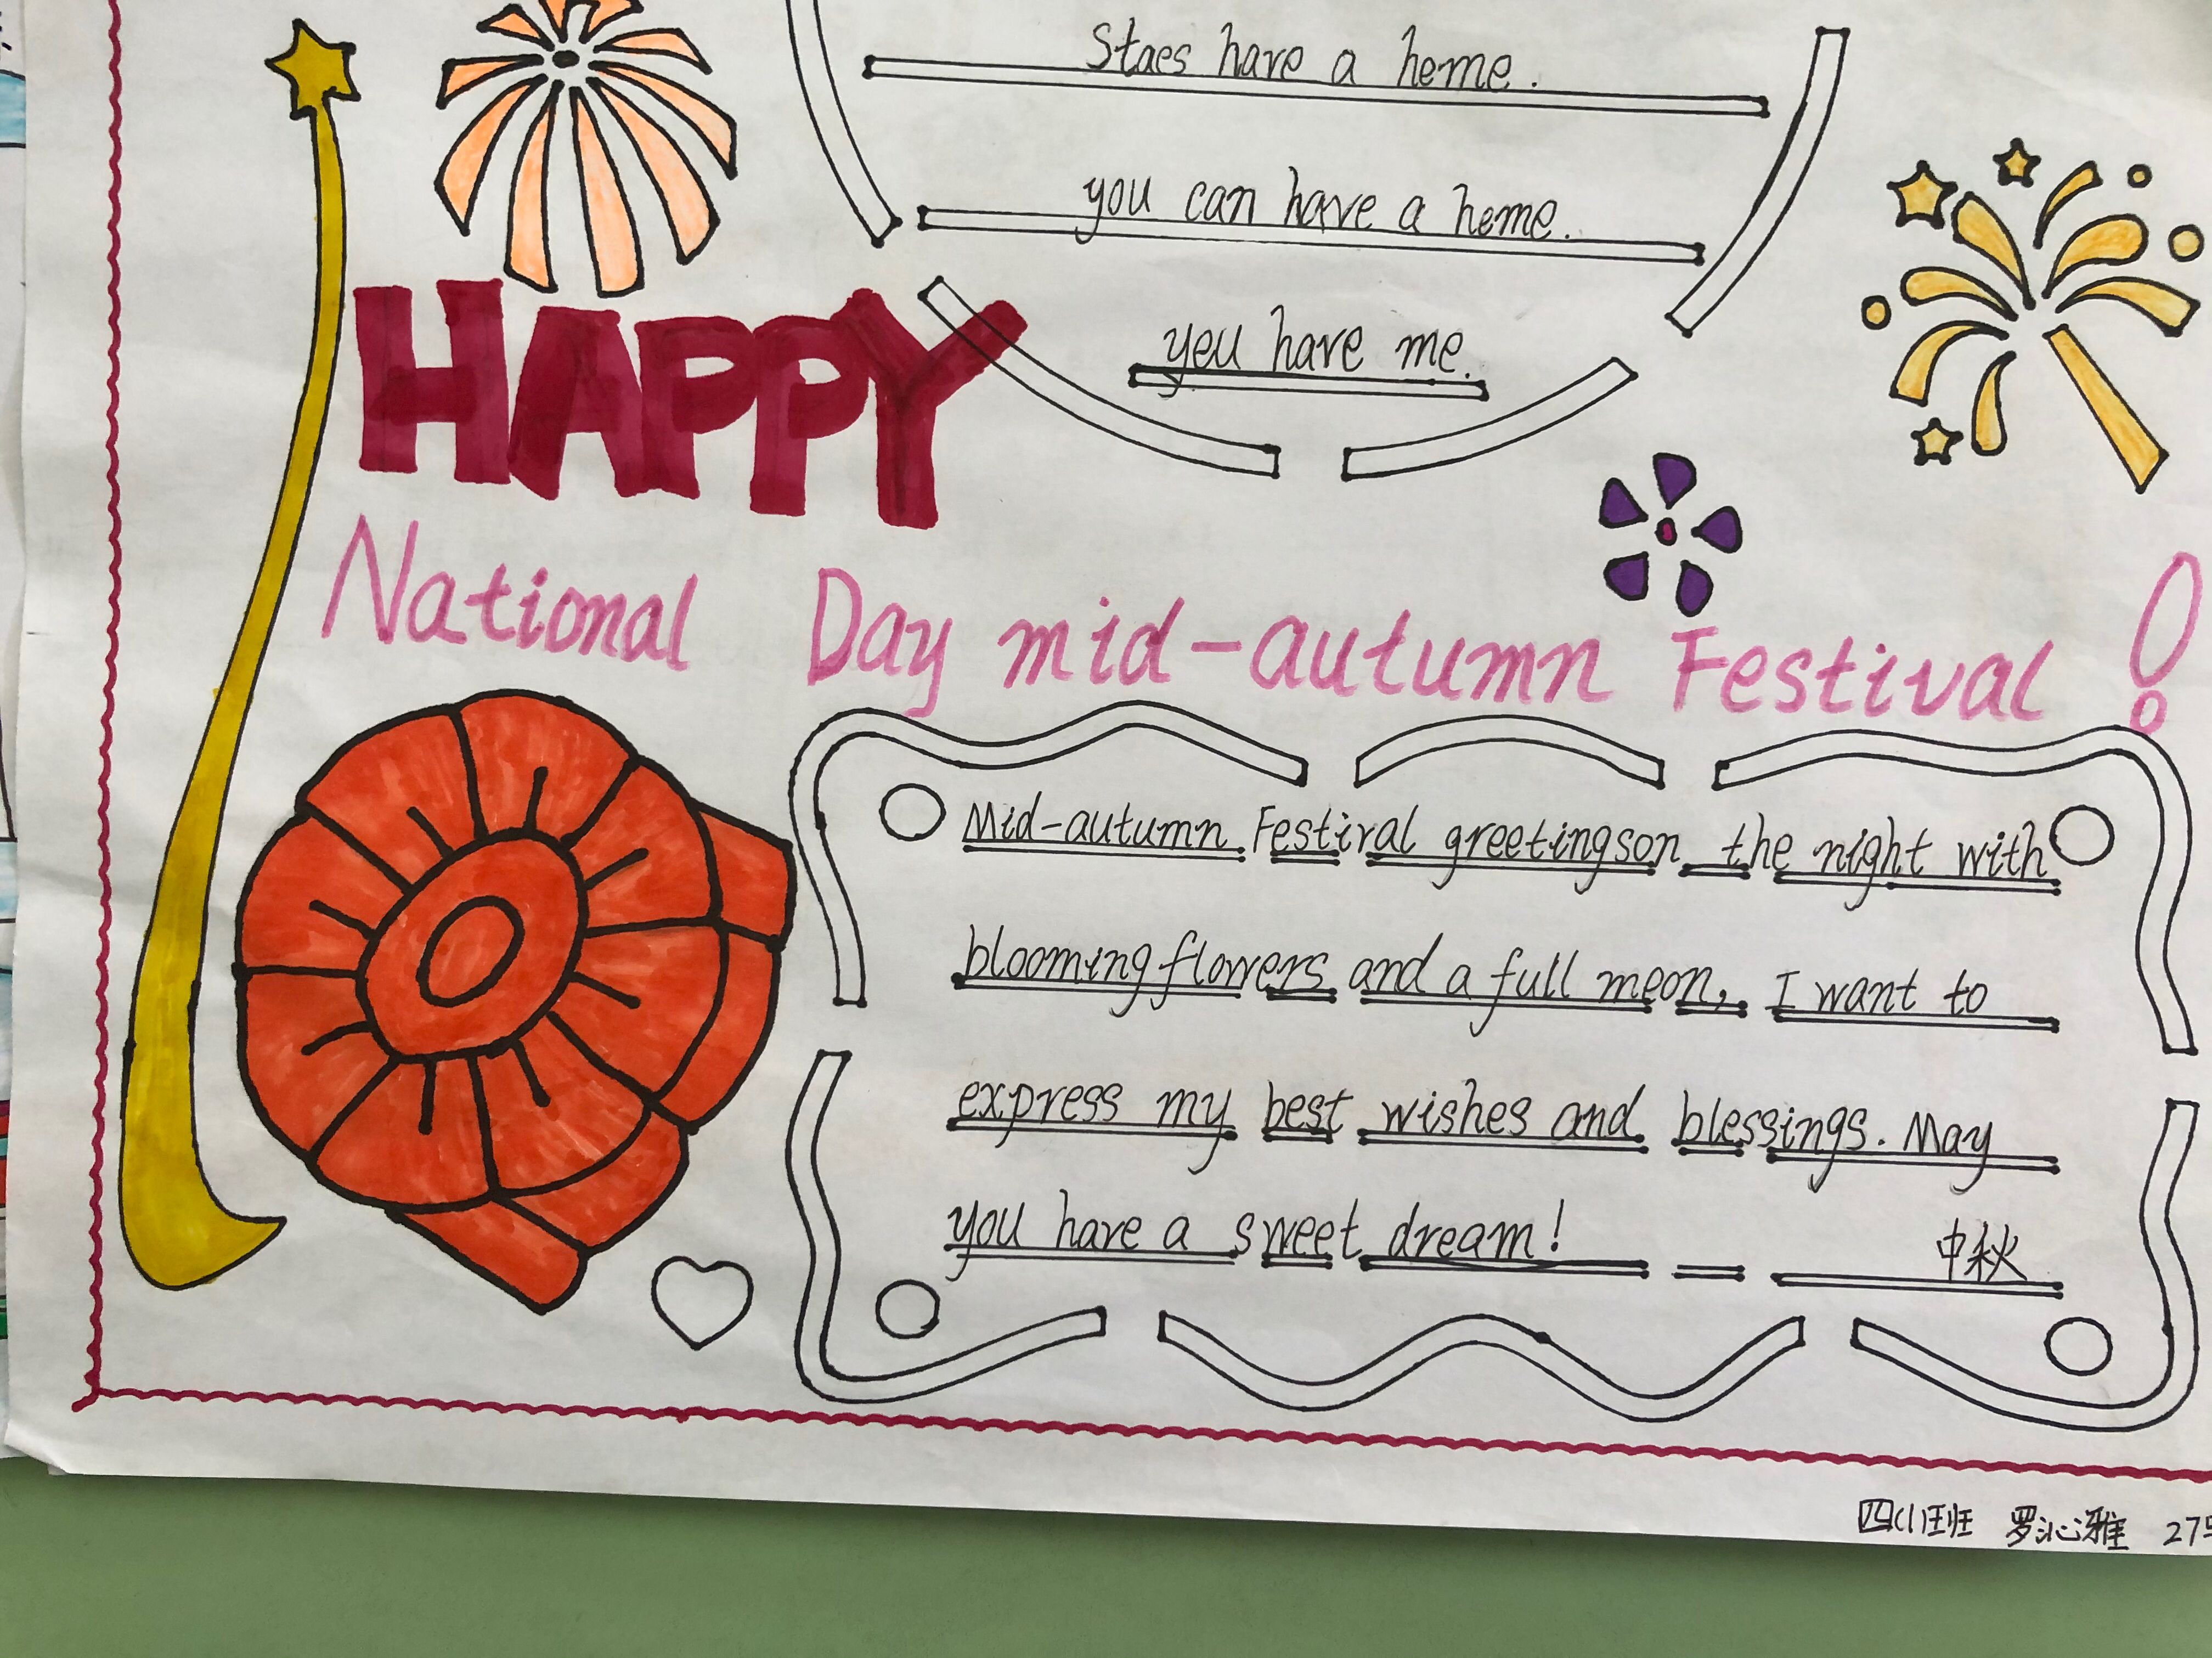 Staes have a heme.
you can have a heme.
yeu have me.
HAPPY
National Day mid-autumn Festival!
Mid-autumn Festival greetingson the night with
blooming flowers and a full meon, I want to
express my best wishes and blessings. May
you have a sweet dream!
中秋
四(1)班 罗沁雅 27